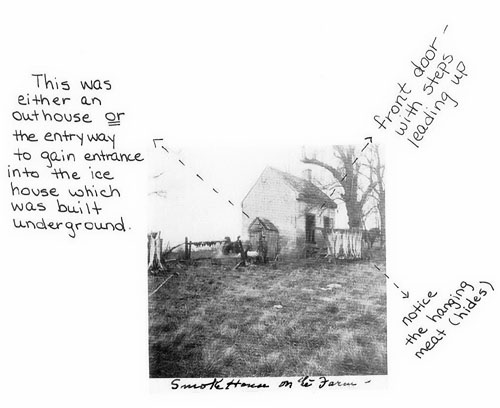 This was
either an
outhouse or
the entryway
to gain entrance
into the ice
house which
was built
underground.
front door -
with steps
leading up
notice
the hanging
meat (hides)
Smoke House on the Farm -